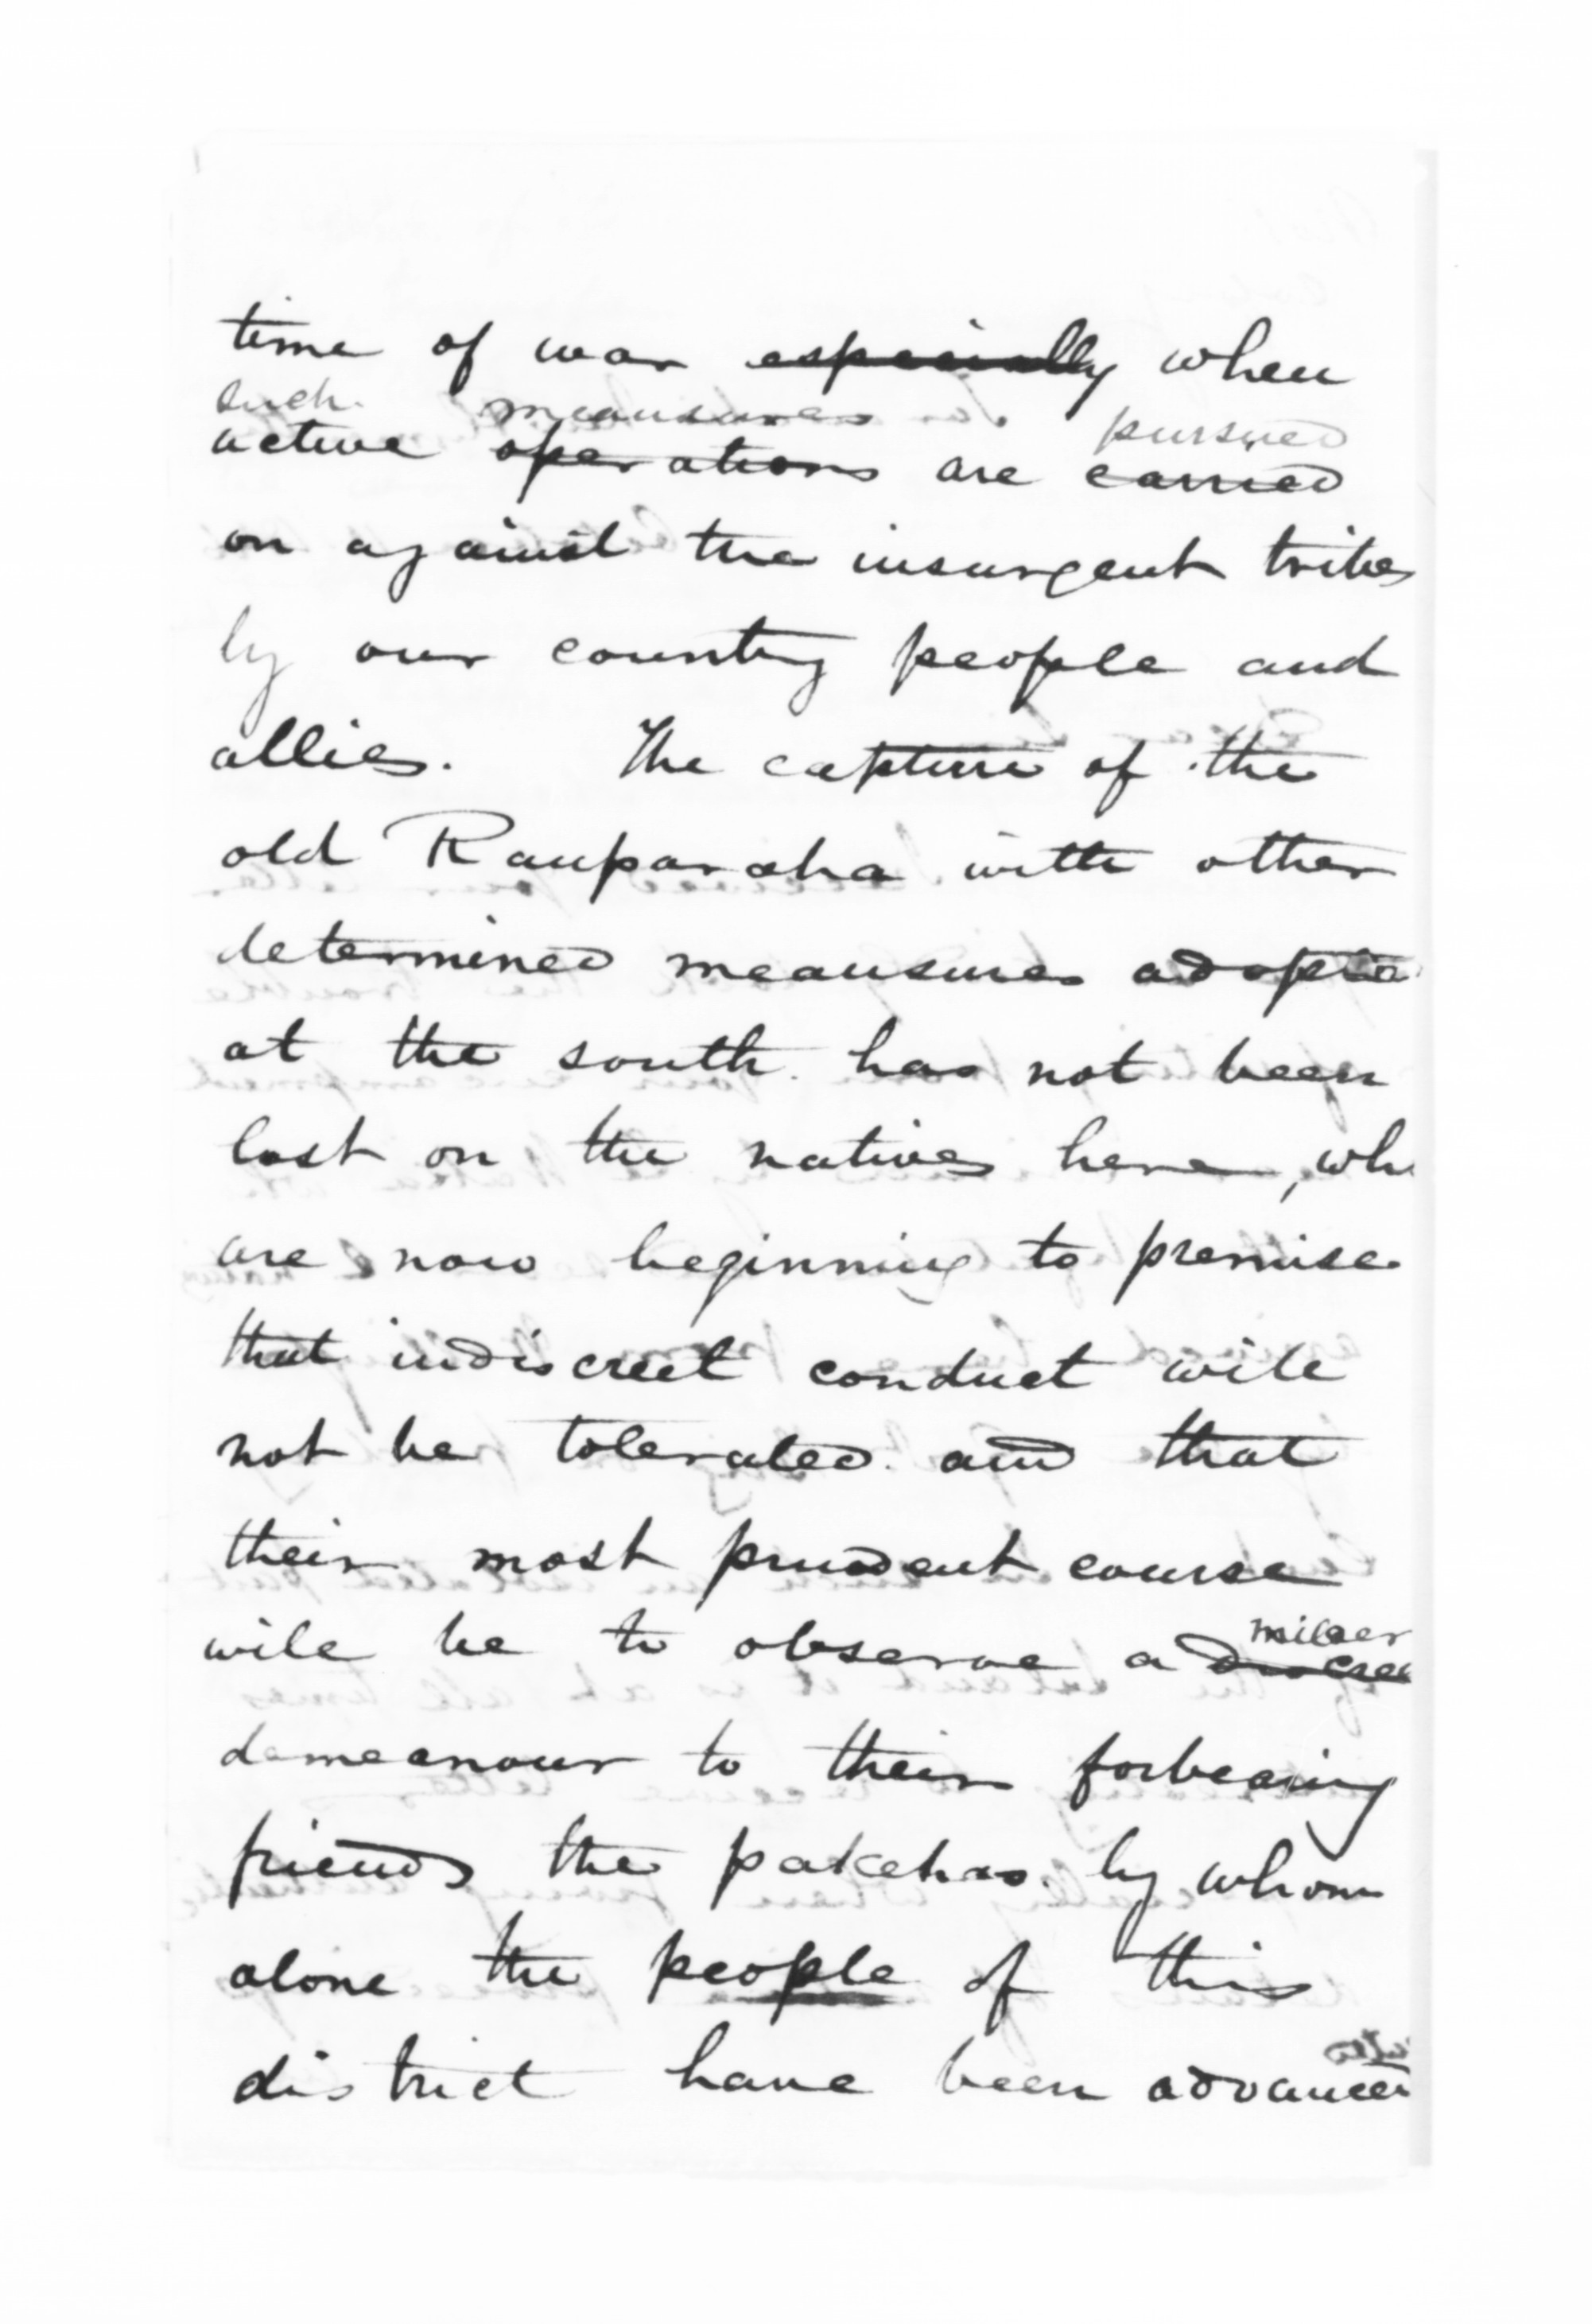 time of war especially when
such measures pursued
active operations are carried
on against the insurgent tribes
by our country people and
allies. The capture of the
old Rauparaha with other
determined meausures adopte
at the south has not been
lost on the natives here, wh
are now beginning to premise
that indiscreet conduct will
not be tolerated and that
their most prudent course
milder
will be to observe a discree
demeanour to their forbearing
friends the pakehas by whom
alone the people of this
district have been advanced